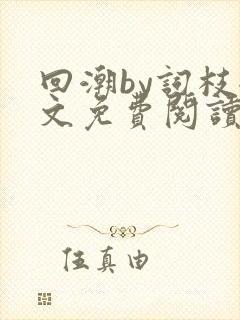 回潮by詞枝
文免費閱讀
伍真由